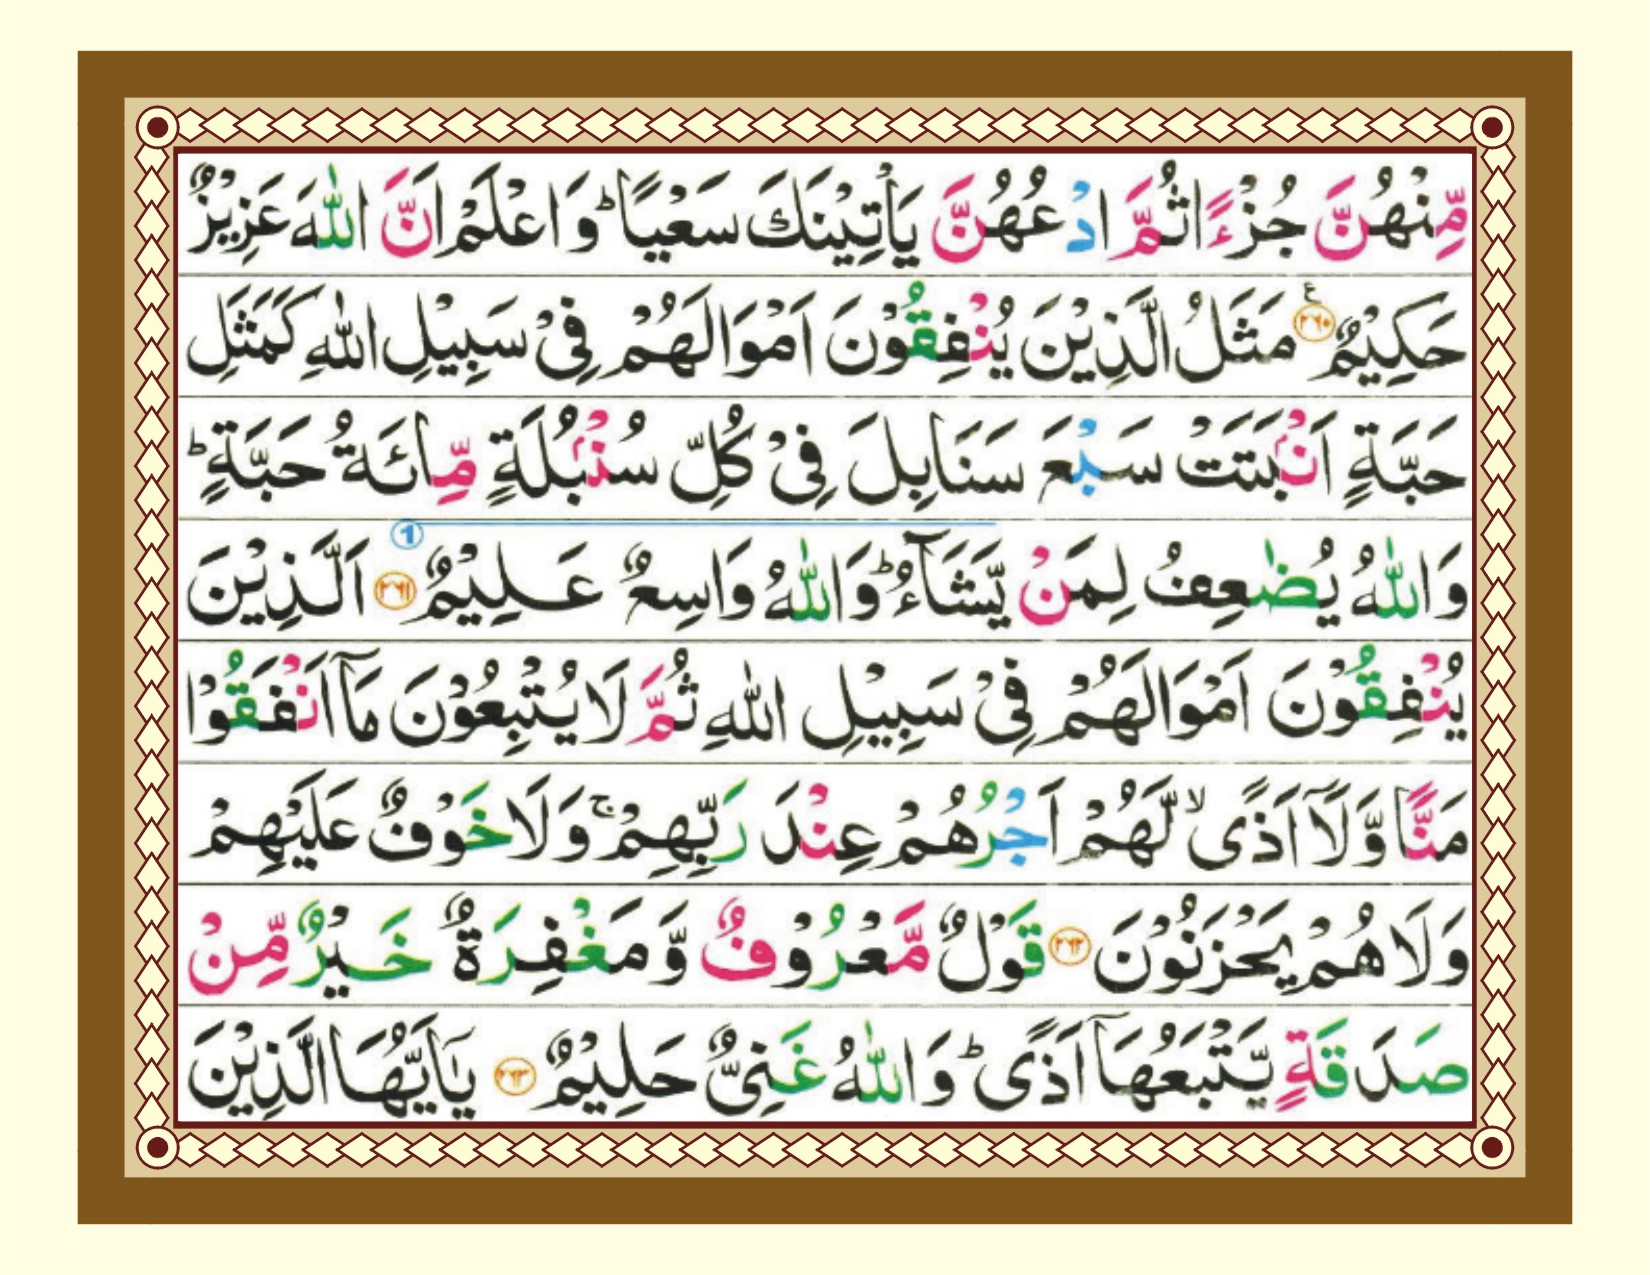 مِّنْهُنَّ جُزْءًا ثُمَّ ادْعُهُنَّ يَاْتِيْنَكَ سَعْيًا ؕ وَاعْلَمْ اَنَّ اللّٰهَ عَزِيْزٌ
حَكِيْمٌ ﴿۲۶۰﴾ ع مَثَلُ الَّذِيْنَ يُنْفِقُوْنَ اَمْوَالَهُمْ فِىْ سَبِيْلِ اللّٰهِ كَمَثَلِ
حَبَّةٍ اَنْۢبَتَتْ سَبْعَ سَنَابِلَ فِىْ كُلِّ سُنْۢبُلَةٍ مِّائَةُ حَبَّةٍ ؕ
وَاللّٰهُ يُضٰعِفُ لِمَنْ يَّشَآءُ ؕ وَاللّٰهُ وَاسِعٌ عَلِيْمٌ ﴿۲۶۱﴾ 1 اَلَّذِيْنَ
يُنْفِقُوْنَ اَمْوَالَهُمْ فِىْ سَبِيْلِ اللّٰهِ ثُمَّ لَا يُتْبِعُوْنَ مَآ اَنْفَقُوْا
مَنًّا وَّلَآ اَذًى ۙ لَّهُمْ اَجْرُهُمْ عِنْدَ رَبِّهِمْ ۚ وَلَا خَوْفٌ عَلَيْهِمْ
وَلَا هُمْ يَحْزَنُوْنَ ﴿۲۶۲﴾ قَوْلٌ مَّعْرُوْفٌ وَّمَغْفِرَةٌ خَيْرٌ مِّنْ
صَدَقَةٍ يَّتْبَعُهَآ اَذًى ؕ وَاللّٰهُ غَنِىٌّ حَلِيْمٌ ﴿۲۶۳﴾ يٰۤاَيُّهَا الَّذِيْنَ